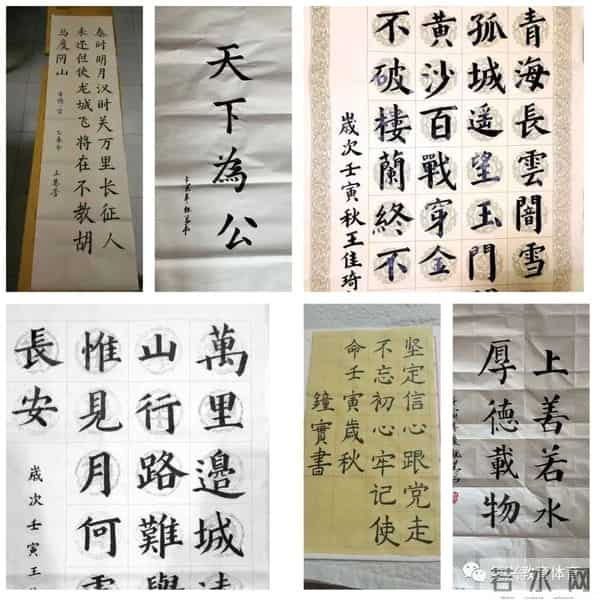 秦时明月汉时关万里长征人
未还但使龙城飞将在不教胡
马度阴山
天下為公
青海長雲闇雪
孤城遥望玉門
黄沙百戰穿金
不破楼蘭終不
歲次壬寅秋王佳琦
萬里邊城
山行路難
惟見月何
長安
歲次壬寅王
坚定信心跟党走
不忘初心牢记使
命壬寅歲秋
鐘實書
上善若水
厚德載物
教育体育